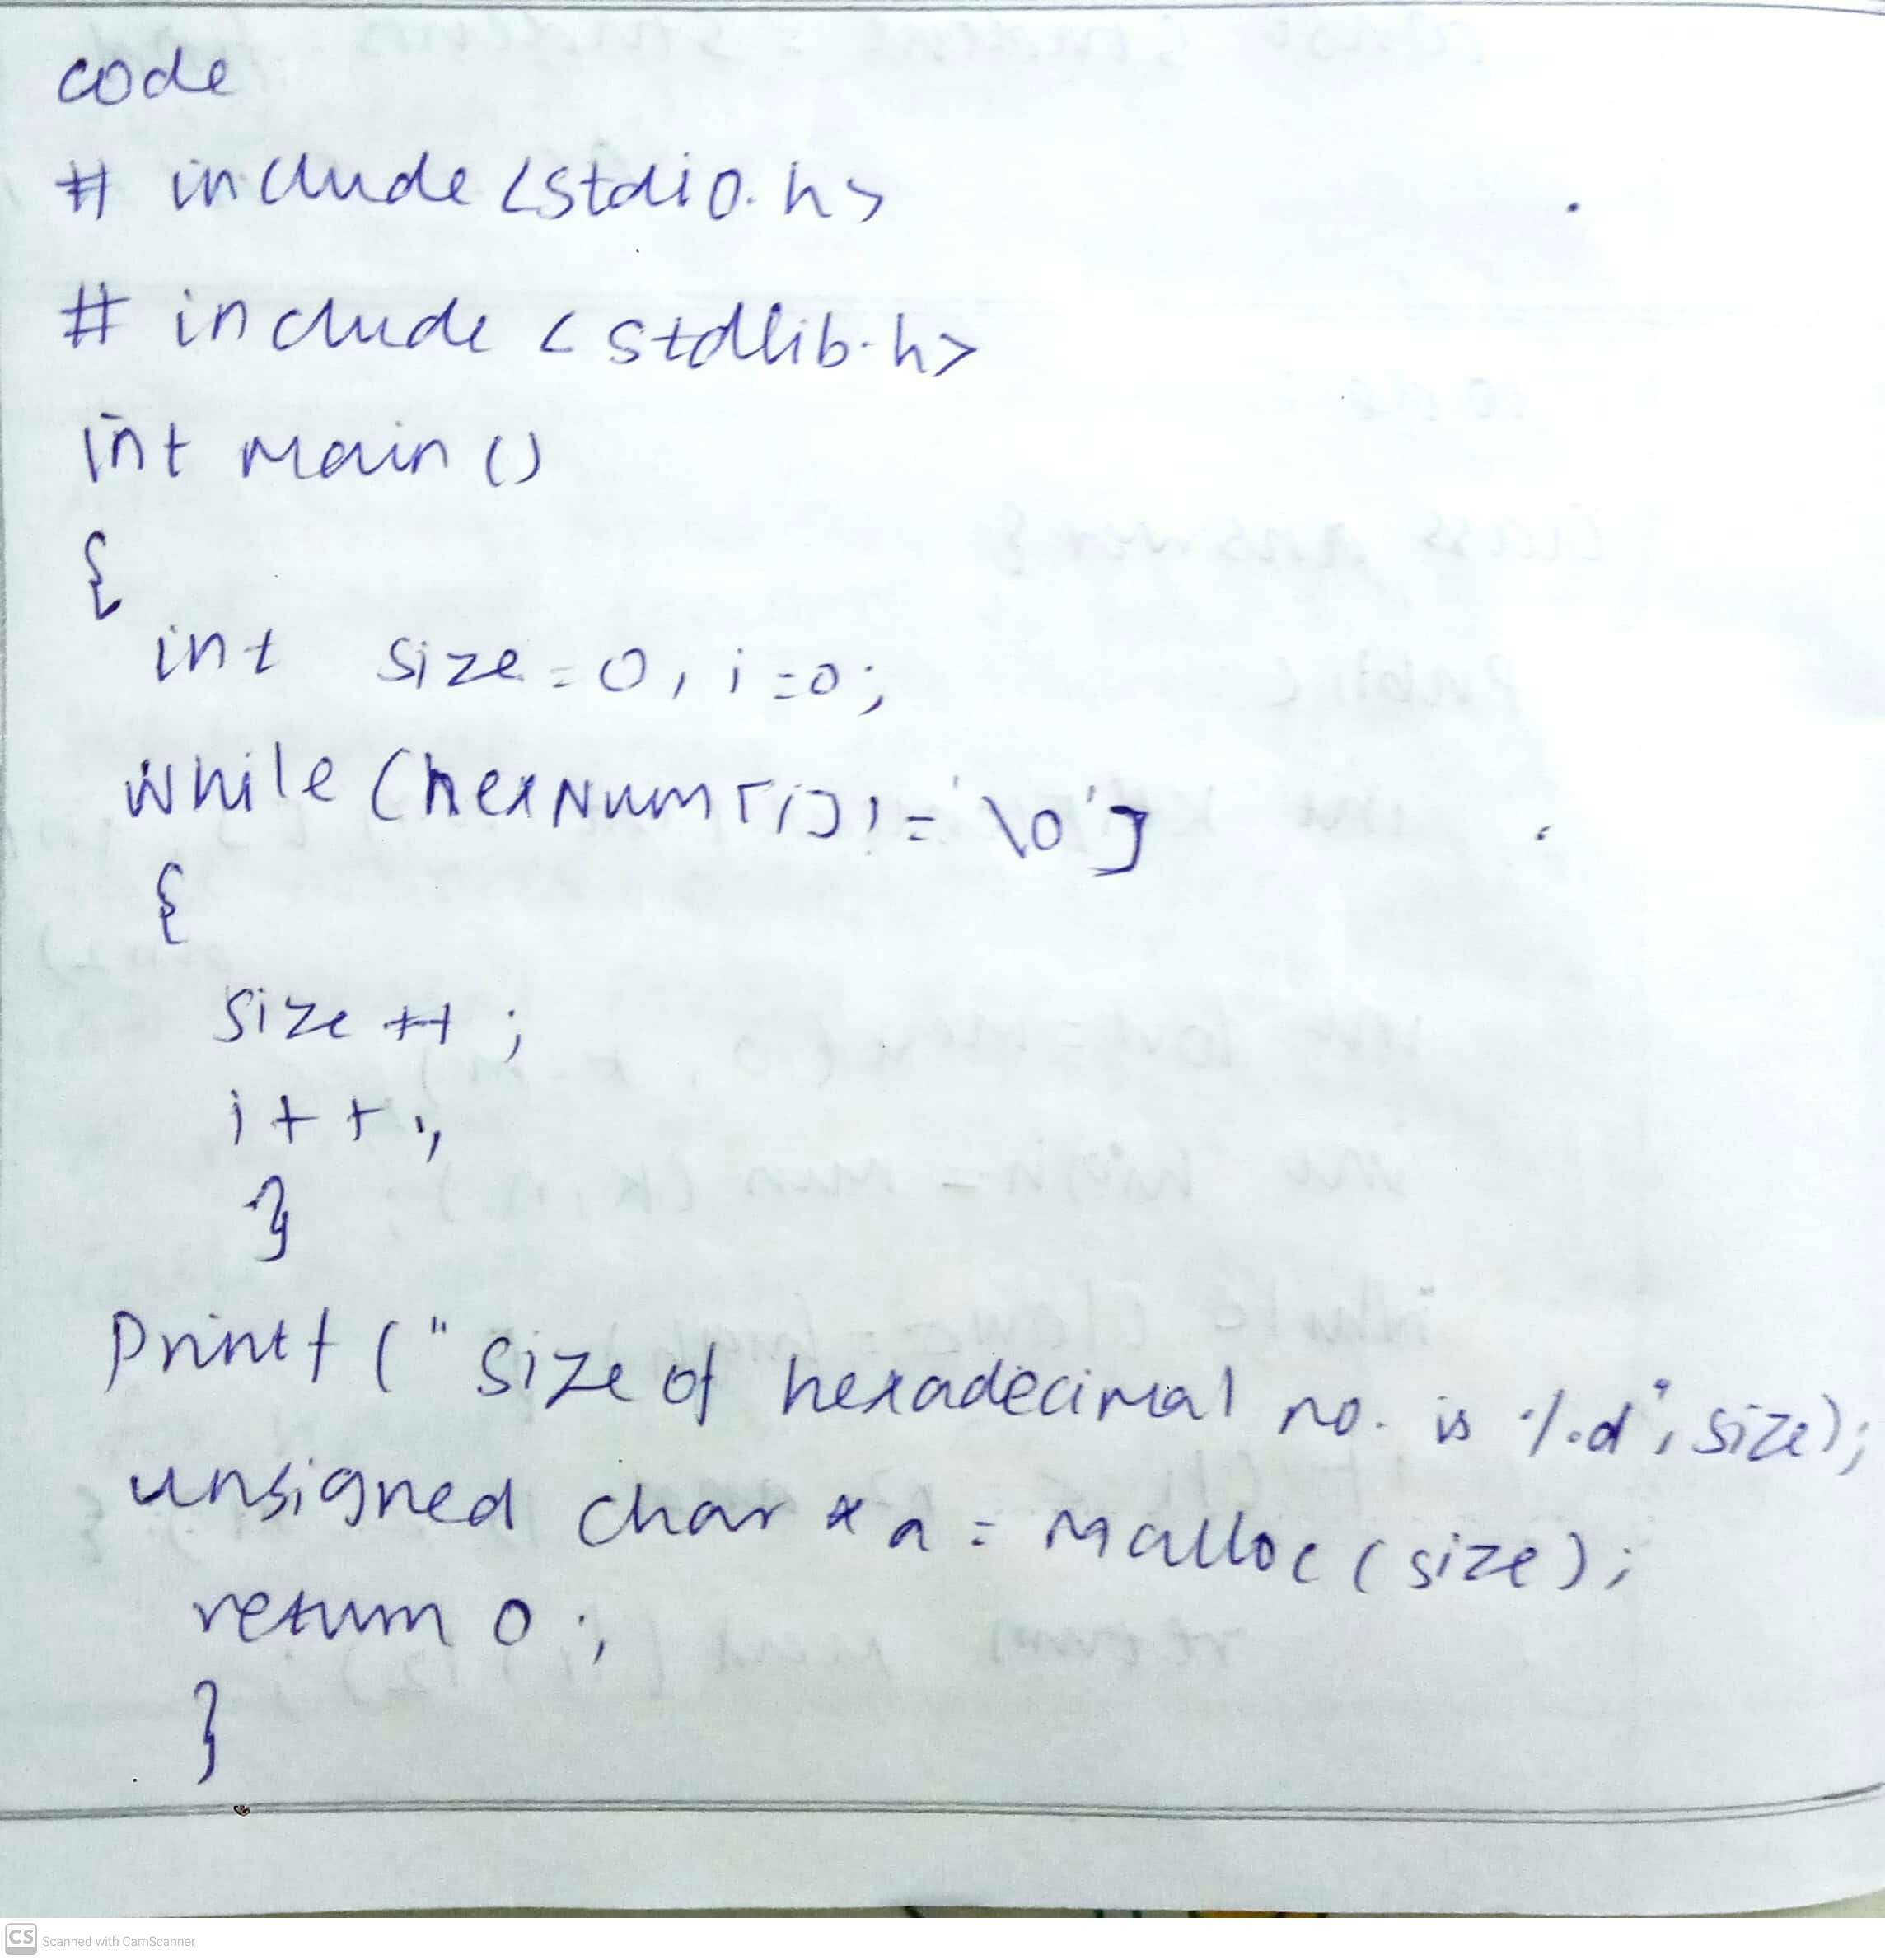 code
# include <stdio.h>
# include <stdlib.h>
int main ()
{
int size = 0, i = 0;
while (hexNum[i] != '\0']
{
size ++ ;
i + + ;
}
Printf (" Size of hexadecimal no. is %d", size);
unsigned char * a = Malloc (size);
return 0 ;
}
CS Scanned with CamScanner